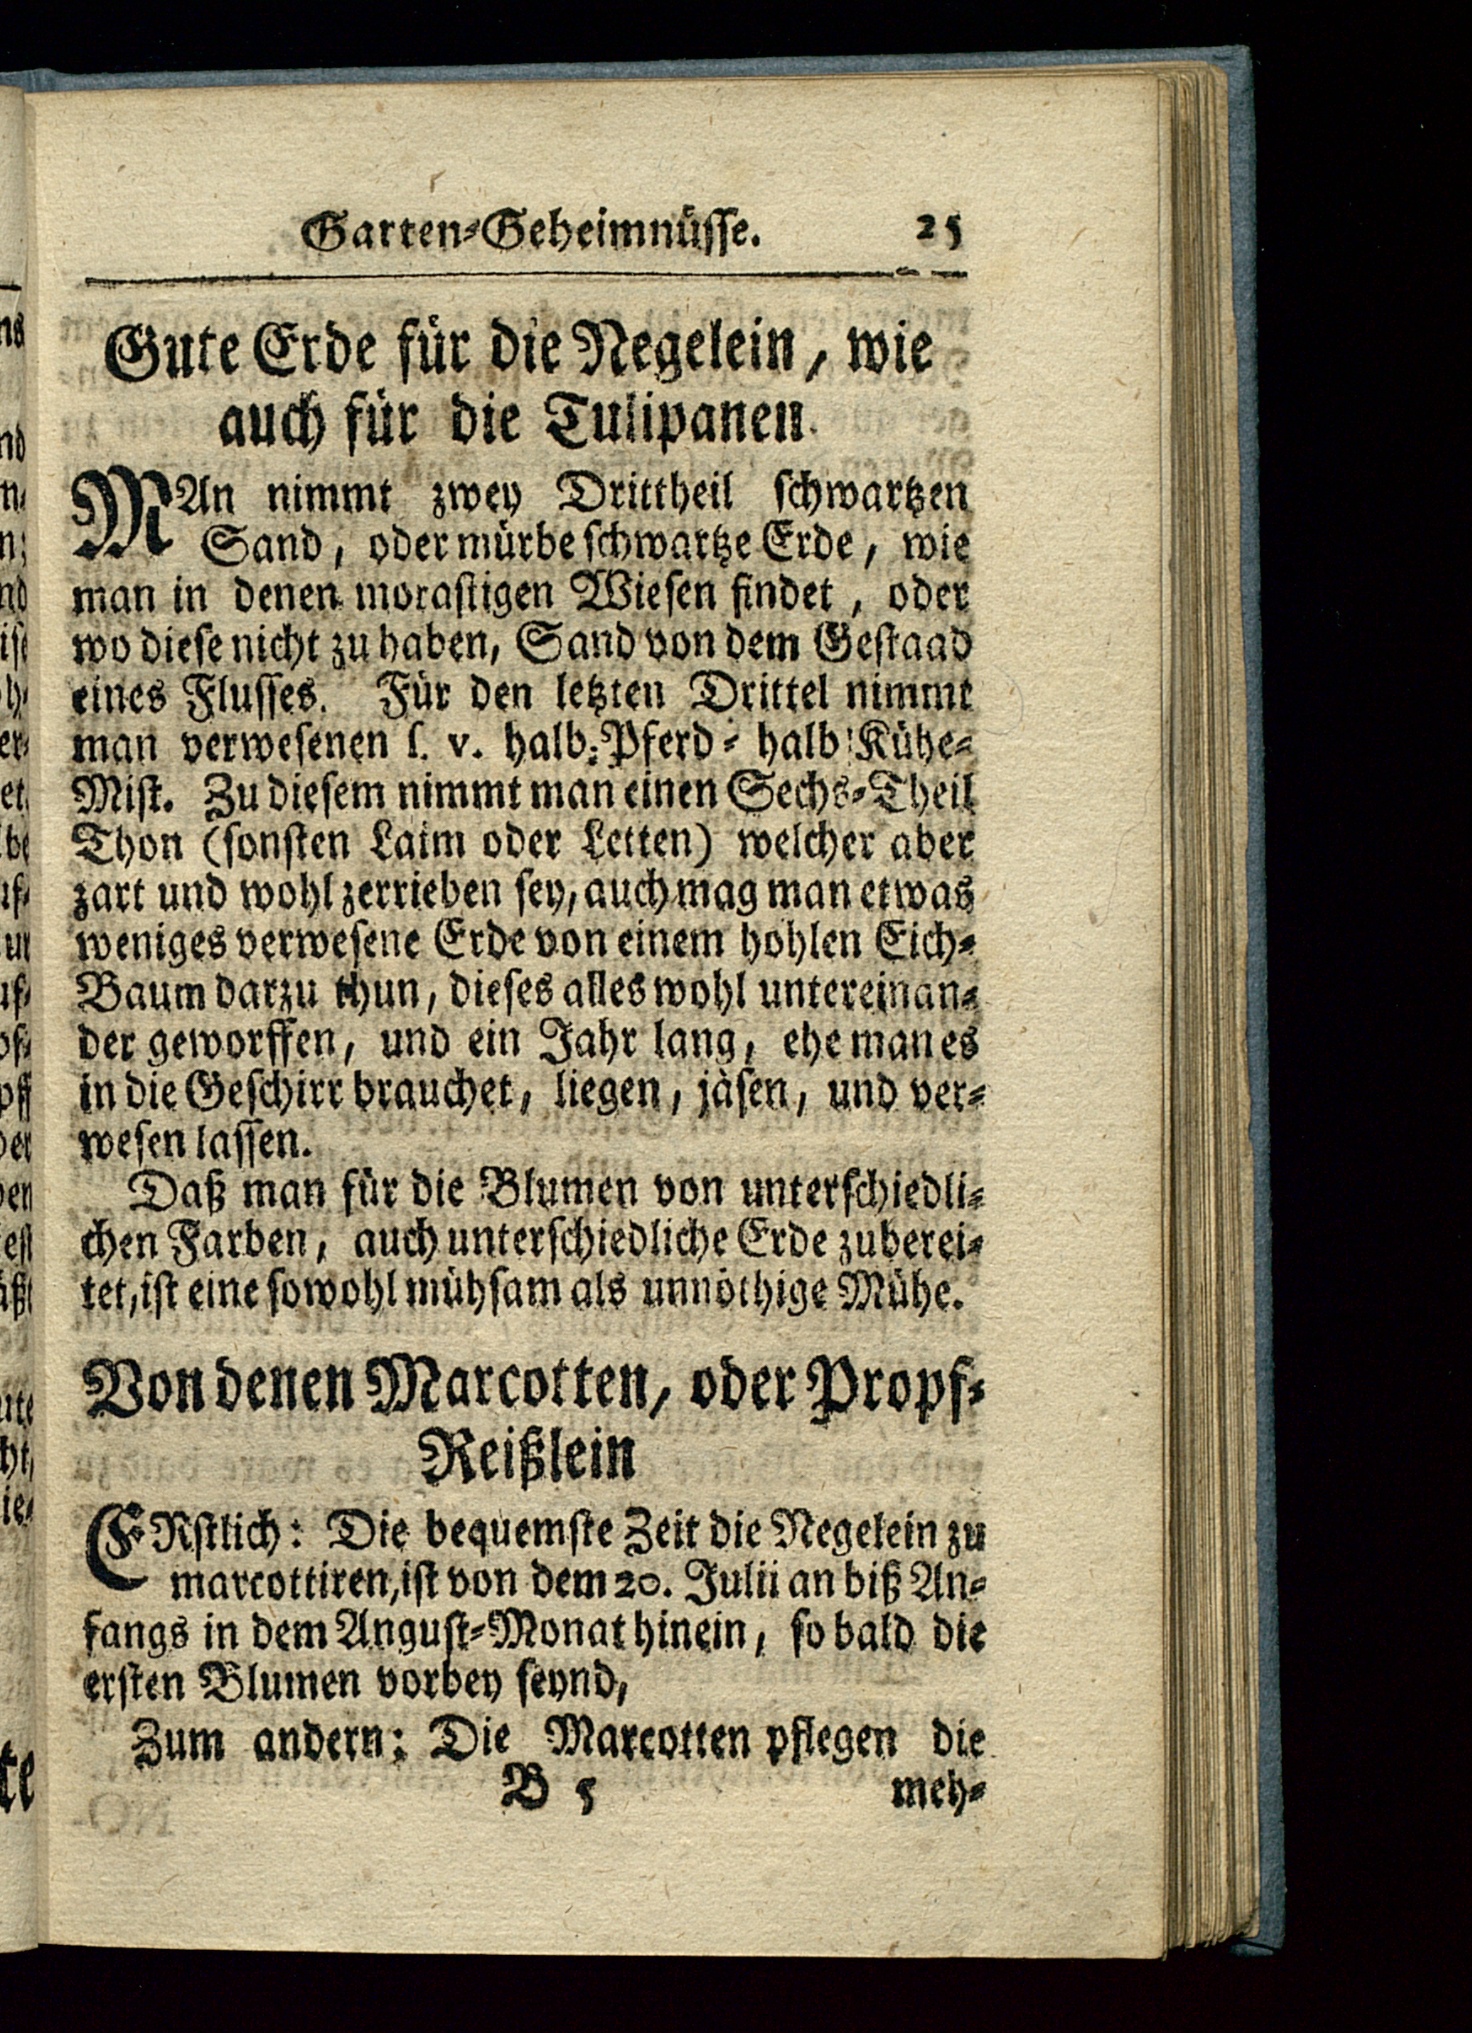 Garten-Geheimnüsse. 25
Gute Erde für die Negelein, wie
auch für die Tulipanen.
MAn nimmt zwey Drittheil schwartzen
Sand, oder mürbe schwartze Erde, wie
man in denen morastigen Wiesen findet, oder
wo diese nicht zu haben, Sand von dem Gestaad
eines Flusses. Für den letzten Drittel nimmt
man verwesenen s. v. halb-Pferd- halb Kühe-
Mist. Zu diesem nimmt man einen Sechs-Theil
Thon (sonsten Laim oder Letten) welcher aber
zart und wohl zerrieben sey, auch mag man etwas
weniges verwesene Erde von einem hohlen Eich-
Baum darzu thun, dieses alles wohl untereinan-
der geworffen, und ein Jahr lang, ehe man es
in die Geschirr brauchet, liegen, jäsen, und ver-
wesen lassen.
Daß man für die Blumen von unterschiedli-
chen Farben, auch unterschiedliche Erde zuberei-
tet, ist eine sowohl mühsam als unnöthige Mühe.
Von denen Marcotten, oder Propf-
Reißlein
ERstlich: Die bequemste Zeit die Negelein zu
marcottiren, ist von dem 20. Julii an biß An-
fangs in dem Angust-Monat hinein, so bald die
ersten Blumen vorbey seynd,
Zum andern: Die Marcotten pflegen die
B 5 meh-